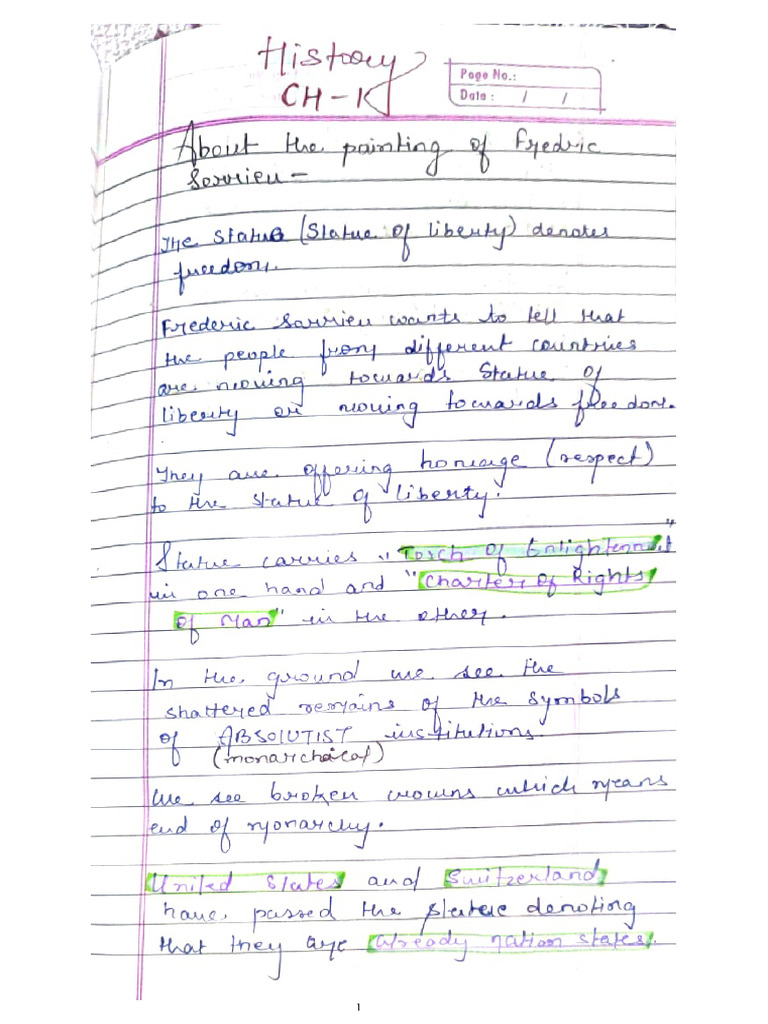 History
CH-1
Page No.:
Date: / /
About the painting of Fredric
Sorrieu -
The Statue (Statue of liberty) denotes
freedom.
Frederic Sorrieu wants to tell that
the people from different countries
are moving towards Statue of
liberty or moving towards freedom.
They are offering homage (respect)
to the statue of liberty.
Statue carries "Torch of Enlightenment"
in one hand and "Charter of Rights
of Man" in the other.
In the ground we see the
shattered remains of the symbols
of ABSOLUTIST institutions.
(monarchical)
We see broken crowns which means
end of monarchy.
United States and Switzerland
have passed the statue denoting
that they are already nation states.
1